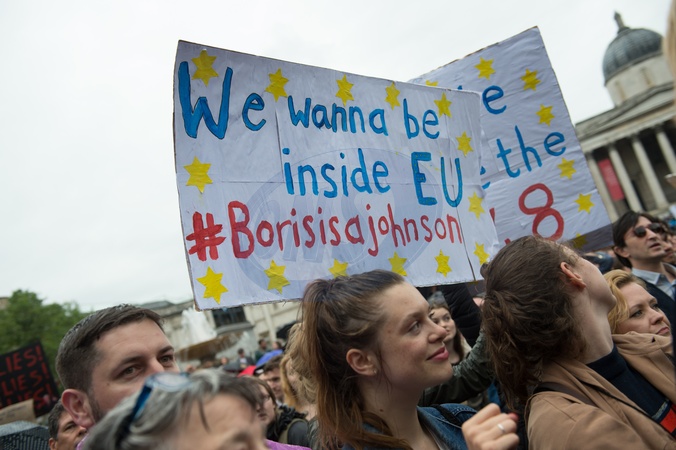 We wanna be
inside EU
#Borisisajohnson
be
the
8
LIES!
LIES!